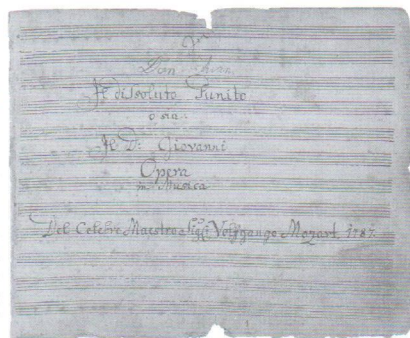 Il dissoluto Punito
o sia
Il D: Giovanni
Opera
in Musica
Del Celebre Maestro Sig: Volfgango Mozart 1787.